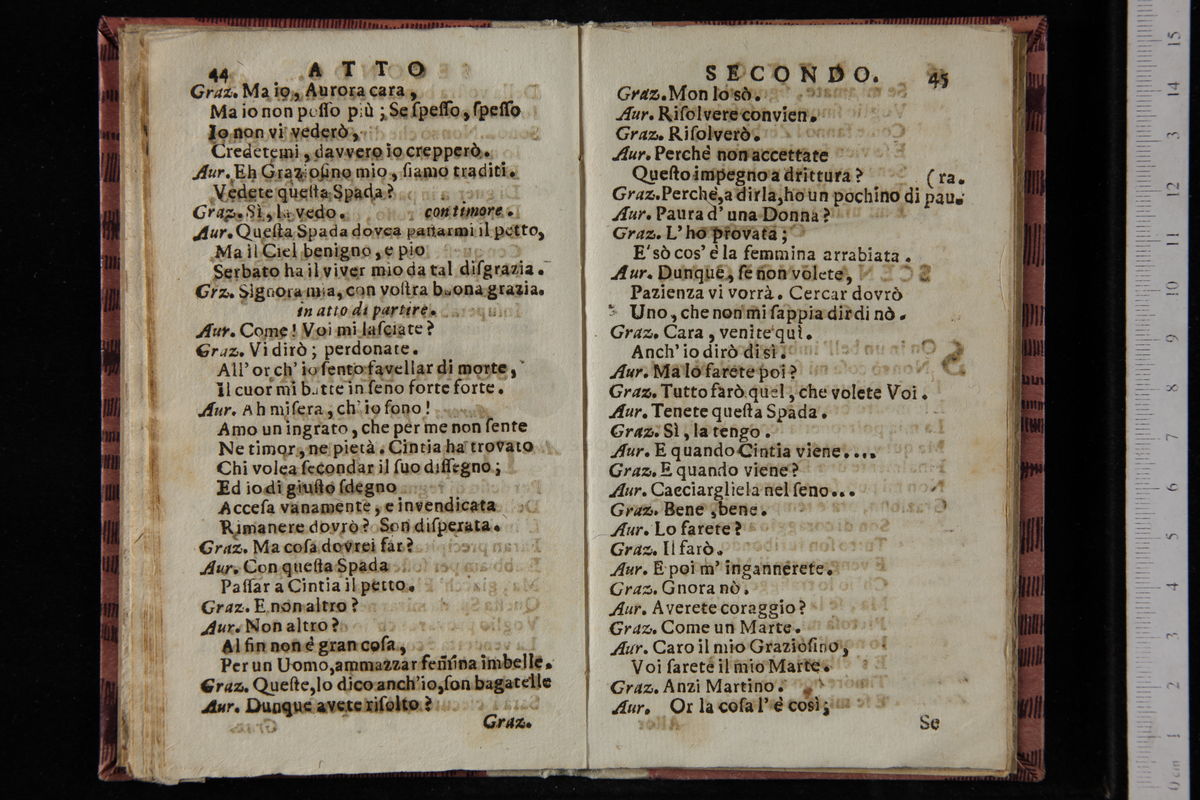 44 ATTO
Graz. Ma io, Aurora cara,
Ma io non poſſo più; Se ſpeſſo, ſpeſſo
Io non vi vederò,
Credetemi, davvero io crepperò.
Aur. Eh Graziofino mio, ſiamo traditi.
Vedete queſta Spada?
Graz. Sì, la vedo. con timore.
Aur. Queſta Spada dovea paſſarmi il petto,
Ma il Ciel benigno, e pio
Serbato ha il viver mio da tal diſgrazia.
Grz. Signora mia, con voſtra buona grazia.
in atto di partire.
Aur. Come! Voi mi laſciate?
Graz. Vi dirò; perdonate.
All' or ch' io ſento favellar di morte,
Il cuor mi batte in ſeno forte forte.
Aur. Ah miſera, ch' io ſono!
Amo un ingrato, che per me non ſente
Ne timor, ne pietà. Cintia ha trovato
Chi volea ſecondar il ſuo diſſegno;
Ed io di giuſto ſdegno
Acceſa vanamente, e invendicata
Rimanere dovrò? Son diſperata.
Graz. Ma coſa dovrei far?
Aur. Con queſta Spada
Paſſar a Cintia il petto.
Graz. E non altro?
Aur. Non altro?
Al fin non è gran coſa,
Per un Uomo, ammazzar femina imbelle.
Graz. Queſte, lo dico anch'io, ſon bagatelle
Aur. Dunque avete riſolto?
Graz.
SECONDO. 45
Graz. Mon lo sò.
Aur. Riſolvere convien.
Graz. Riſolverò.
Aur. Perchè non accettate
Queſto impegno a drittura? (ra.
Graz. Perchè, a dirla, ho un pochino di pau.
Aur. Paura d' una Donna?
Graz. L' ho provata;
E sò cos' è la femmina arrabiata.
Aur. Dunque, ſe non volete,
Pazienza vi vorrà. Cercar dovrò
Uno, che non mi ſappia dir di nò.
Graz. Cara, venite quì.
Anch' io dirò di sì.
Aur. Ma lo farete poi?
Graz. Tutto farò quel, che volete Voi.
Aur. Tenete queſta Spada.
Graz. Sì, la tengo.
Aur. E quando Cintia viene....
Graz. E quando viene?
Aur. Caeciargliela nel ſeno...
Graz. Bene, bene.
Aur. Lo farete?
Graz. Il farò.
Aur. E poi m' ingannerete.
Graz. Gnora nò.
Aur. Averete coraggio?
Graz. Come un Marte.
Aur. Caro il mio Graziòſino,
Voi ſarete il mio Marte.
Graz. Anzi Martino.
Aur. Or la coſa l' è così;
Se